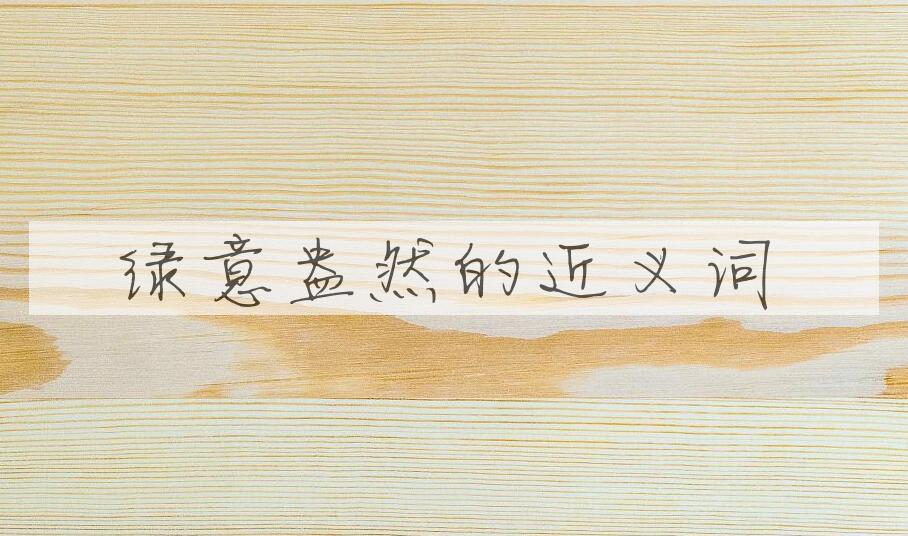 绿意盎然的近义词